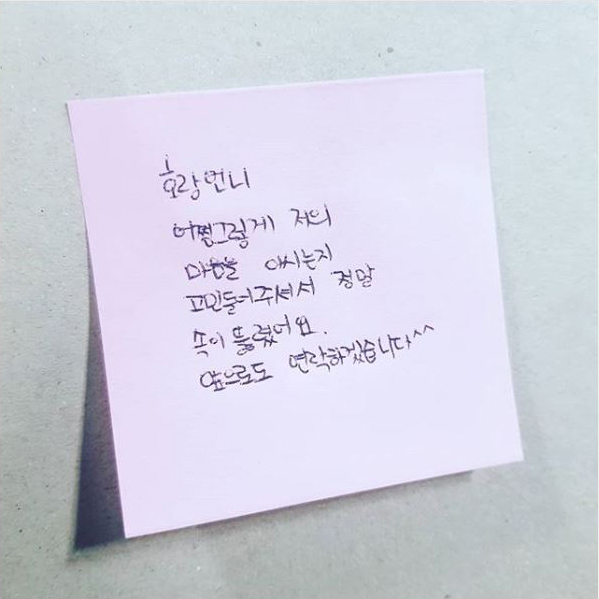 호랑언니
어쩜그렇게 저의
마음을 아시는지
고민들어주셔서 정말
속이 뚫렸어요.
앞으로도 연락하겠습니다^^